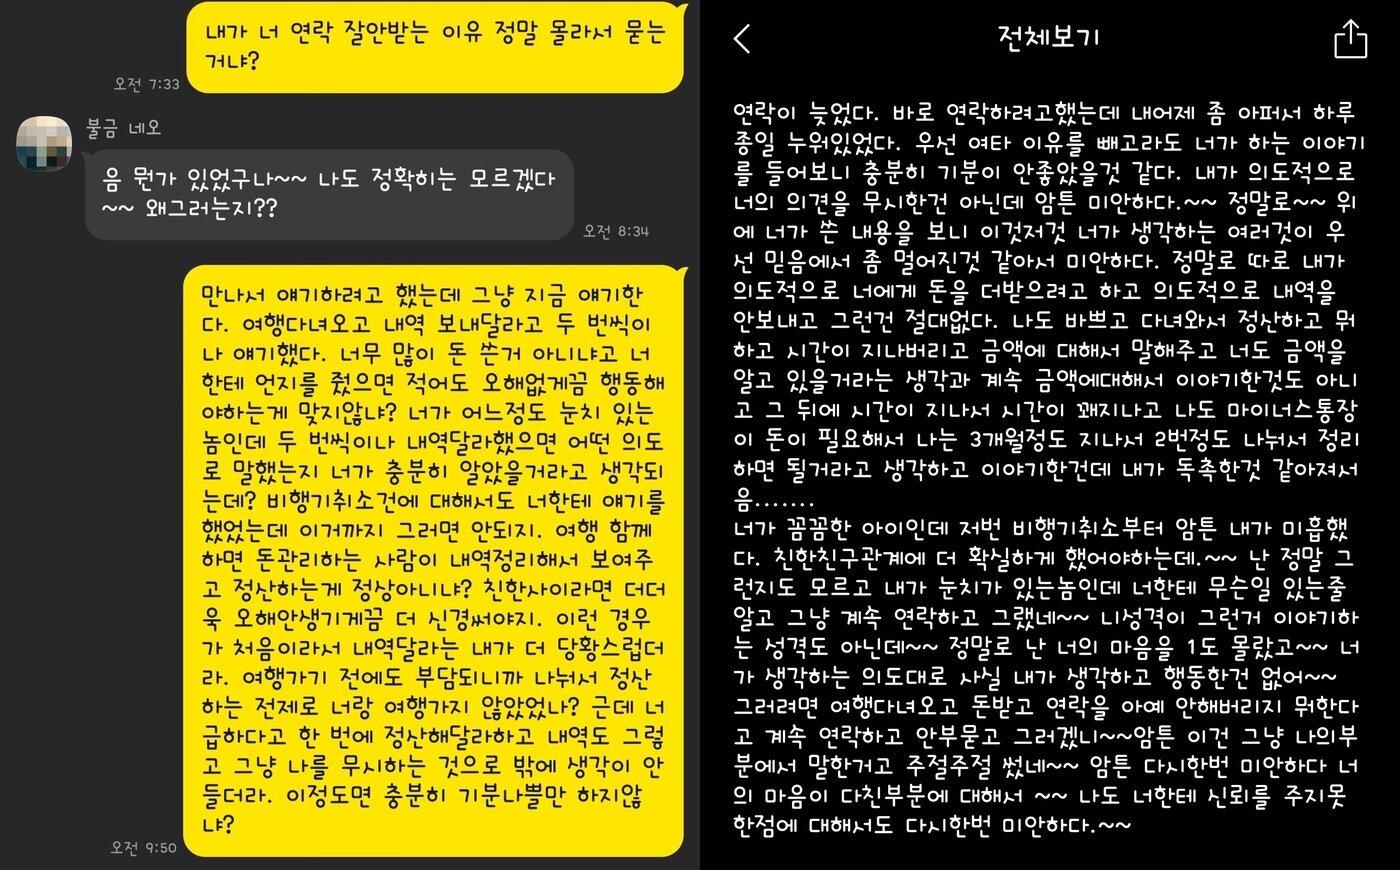 내가 너 연락 잘안받는 이유 정말 몰라서 묻는
거냐?
오전 7:33
불금 네오
음 뭔가 있었구나~~ 나도 정확히는 모르겠다
~~ 왜그러는지??
오전 8:34
만나서 얘기하려고 했는데 그냥 지금 얘기한
다. 여행다녀오고 내역 보내달라고 두 번씩이
나 얘기했다. 너무 많이 돈 쓴거 아니냐고 너
한테 언지를 줬으면 적어도 오해없게끔 행동해
야하는게 맞지않냐? 너가 어느정도 눈치 있는
놈인데 두 번씩이나 내역달라했으면 어떤 의도
로 말했는지 너가 충분히 알았을거라고 생각되
는데? 비행기취소건에 대해서도 너한테 얘기를
했었는데 이거까지 그러면 안되지. 여행 함께
하면 돈관리하는 사람이 내역정리해서 보여주
고 정산하는게 정상아니냐? 친한사이라면 더더
욱 오해안생기게끔 더 신경써야지. 이런 경우
가 처음이라서 내역달라는 내가 더 당황스럽더
라. 여행가기 전에도 부담되니까 나눠서 정산
하는 전제로 너랑 여행가지 않았었나? 근데 너
급하다고 한 번에 정산해달라하고 내역도 그렇
고 그냥 나를 무시하는 것으로 밖에 생각이 안
들더라. 이정도면 충분히 기분나쁠만 하지않
냐?
오전 9:50
전체보기
연락이 늦었다. 바로 연락하려고했는데 내어제 좀 아퍼서 하루
종일 누워있었다. 우선 여타 이유를 빼고라도 너가 하는 이야기
를 들어보니 충분히 기분이 안좋았을것 같다. 내가 의도적으로
너의 의견을 무시한건 아닌데 암튼 미안하다.~~ 정말로~~ 위
에 너가 쓴 내용을 보니 이것저것 너가 생각하는 여러것이 우
선 믿음에서 좀 멀어진것 같아서 미안하다. 정말로 따로 내가
의도적으로 너에게 돈을 더받으려고 하고 의도적으로 내역을
안보내고 그런건 절대없다. 나도 바쁘고 다녀와서 정산하고 뭐
하고 시간이 지나버리고 금액에 대해서 말해주고 너도 금액을
알고 있을거라는 생각과 계속 금액에대해서 이야기한것도 아니
고 그 뒤에 시간이 지나서 시간이 꽤지나고 나도 마이너스통장
이 돈이 필요해서 나는 3개월정도 지나서 2번정도 나눠서 정리
하면 될거라고 생각하고 이야기한건데 내가 독촉한것 같아져서
음.......
너가 꼼꼼한 아이인데 저번 비행기취소부터 암튼 내가 미흡했
다. 친한친구관계에 더 확실하게 했어야하는데.~~ 난 정말 그
런지도 모르고 내가 눈치가 있는놈인데 너한테 무슨일 있는줄
알고 그냥 계속 연락하고 그랬네~~ 니성격이 그런거 이야기하
는 성격도 아닌데~~ 정말로 난 너의 마음을 1도 몰랐고~~ 너
가 생각하는 의도대로 사실 내가 생각하고 행동한건 없어~~
그러려면 여행다녀오고 돈받고 연락을 아예 안해버리지 뭐한다
고 계속 연락하고 안부묻고 그러겠니~~암튼 이건 그냥 나의부
분에서 말한거고 주절주절 썼네~~ 암튼 다시한번 미안하다 너
의 마음이 다친부분에 대해서 ~~ 나도 너한테 신뢰를 주지못
한점에 대해서도 다시한번 미안하다.~~